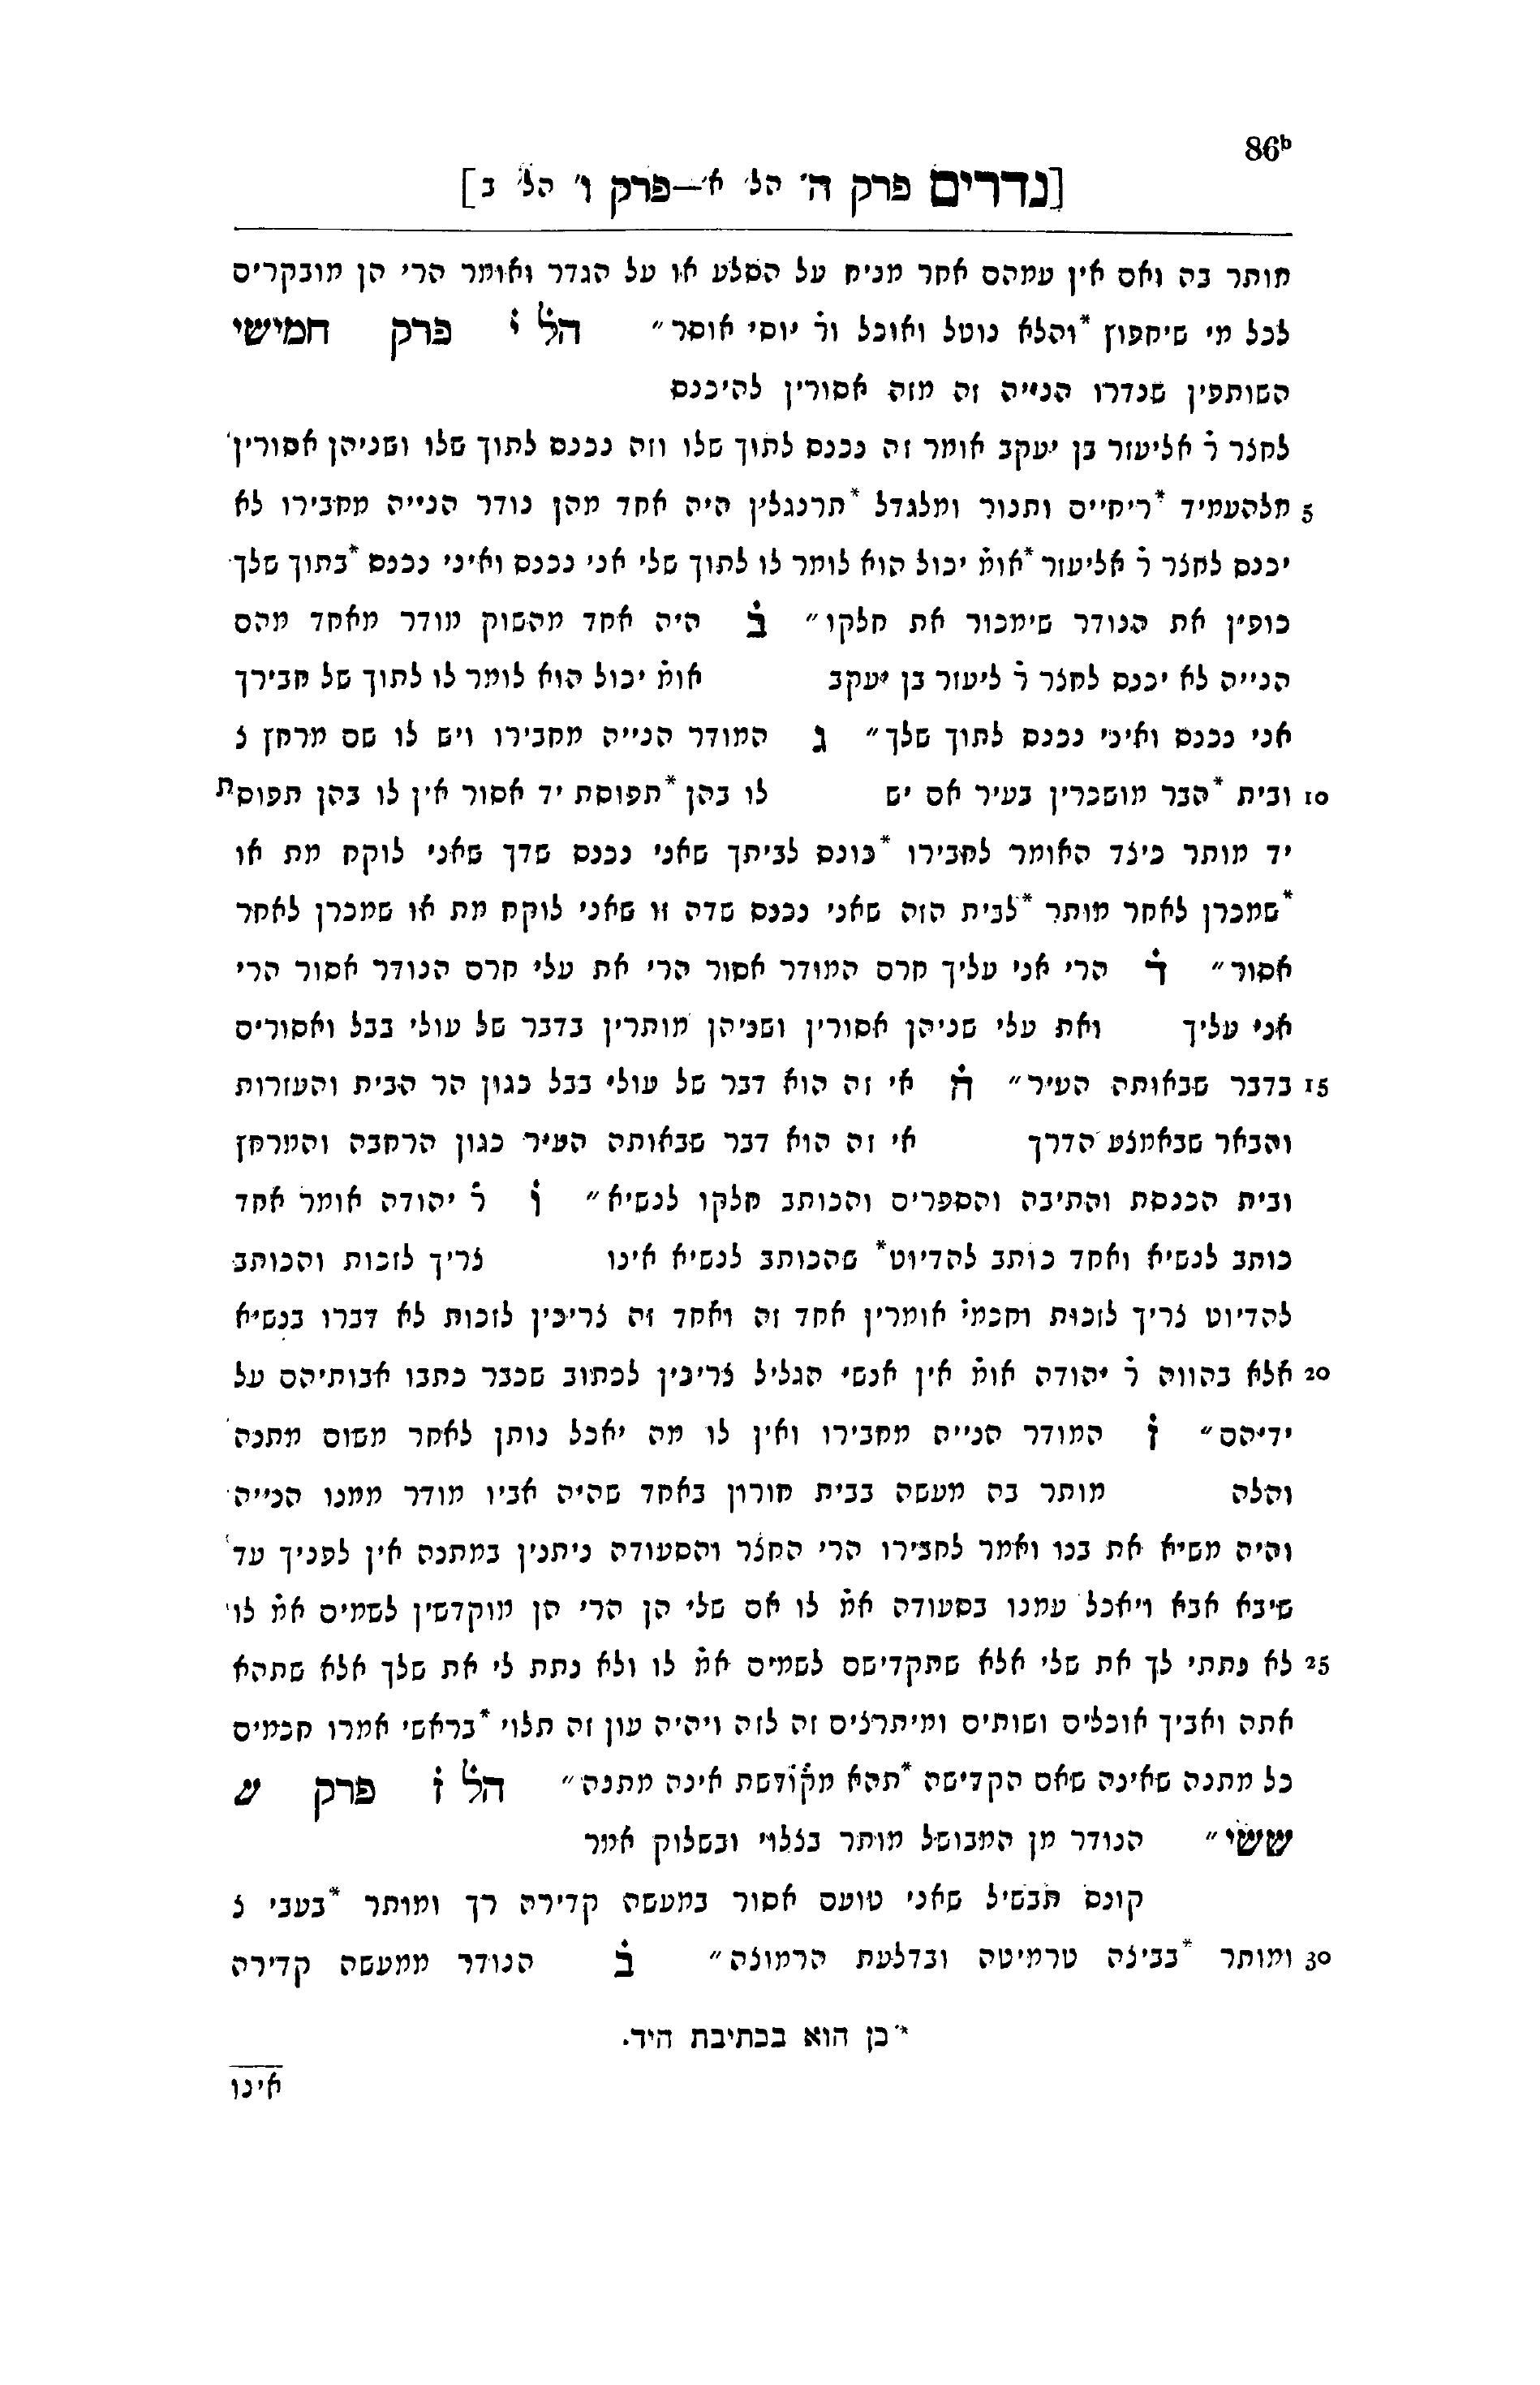 86ᵇ
[נדרים פרק ה' הל' א'—פרק ו' הל' ב]
מותר בה ואם אין עמהם אחר מניח על הסלע או על הגדר ואומר הרי הן מובקרים
לכל מי שיחפוץ *והלא נוטל ואוכל ור̇ יוסי אוסר״ הל̇ י̇ פרק חמישי
השותפין שנדרו הנייה זה מזה אסורין להיכנס
לחצר ר̇ אליעזר בן יעקב אומר זה נכנס לתוך שלו וזה נכנס לתוך שלו ושניהן אסורין
5 מלהעמיד *ריחיים ותנור ומלגדל *תרנגלין היה אחד מהן נודר הנייה מחבירו לא
יכנס לחצר ר̇ אליעזר *אומ̇ יכול הוא לומר לו לתוך שלי אני נכנס ואיני נכנס *בתוך שלך
כופין את הנודר שימכור את חלקו״ ב̇ היה אחד מהשוק מודר מאחד מהם
הנייה לא יכנס לחצר ר̇ ליעזר בן יעקב אומ̇ יכול הוא לומר לו לתוך של חבירך
אני נכנס ואיני נכנס לתוך שלך״ ג̇ המודר הנייה מחבירו ויש לו שם מרחץ צ
10 ובית *הבד מושכרין בעיר אם יש לו בהן *תפוסת יד אסור אין לו בהן תפוסת
יד מותר כיצד האומר לחבירו *כונס לביתך שאני נכנס שדך שאני לוקח מת או
*שמכרן לאחר מותר *לבית הזה שאני נכנס שדה זו שאני לוקח מת או שמכרן לאחר
אסור״ ד̇ הרי אני עליך חרם המודר אסור הרי את עלי חרם הנודר אסור הרי
אני עליך ואת עלי שניהן אסורין ושניהן מותרין בדבר של עולי בבל ואסורים
15 בדבר שבאותה העיר״ ה̇ אי זה הוא דבר של עולי בבל כגון הר הבית והעזרות
והבאר שבאמצע הדרך אי זה הוא דבר שבאותה העיר כגון הרחבה והמרחץ
ובית הכנסת והתיבה והספרים והכותב חלקו לנשיא״ ו̇ ר̇ יהודה אומר אחד
כותב לנשיא ואחד כותב להדיוט* שהכותב לנשיא אינו צריך לזכות והכותב
להדיוט צריך לזכות וחכמי̇ אומרין אחד זה ואחד זה צריכין לזכות לא דברו בנשיא
20 אלא בהווה ר̇ יהודה אומ̇ אין אנשי הגליל צריכין לכתוב שכבר כתבו אבותיהם על
ידיהם״ ז̇ המודר הנייה מחבירו ואין לו מה יאכל נותן לאחר משום מתנה
והלה מותר בה מעשה בבית חורון באחד שהיה אביו מודר ממנו הנייה
והיה משיא את בנו ואמר לחבירו הרי החצר והסעודה ניתנין במתנה אין לפניך עד
שיבא אבא ויאכל עמנו בסעודה אמ̇ לו אם שלי הן הרי הן מוקדשין לשמים אמ̇ לו
25 לא נתתי לך את שלי אלא שתקדישם לשמים אמ̇ לו ולא נתת לי את שלך אלא שתהא
אתה ואביך אוכלים ושותים ומיתרצים זה לזה ויהיה עון זה תלוי *בראשי אמרו חכמים
כל מתנה שאינה שאם הקדישה *תהא מקודשת אינה מתנה״ הל̇ ז̇ פרק ש
ששי״ הנודר מן המבושל מותר בצלוי ובשלוק אמר
קונם תבשיל שאני טועם אסור במעשה קדירה רך ומותר *בעבי צ
30 ומותר *בביצה טרמיטה ובדלעת הרמוצה״ ב̇ הנודר ממעשה קדירה
*כן הוא בכתיבת היד.
אינו